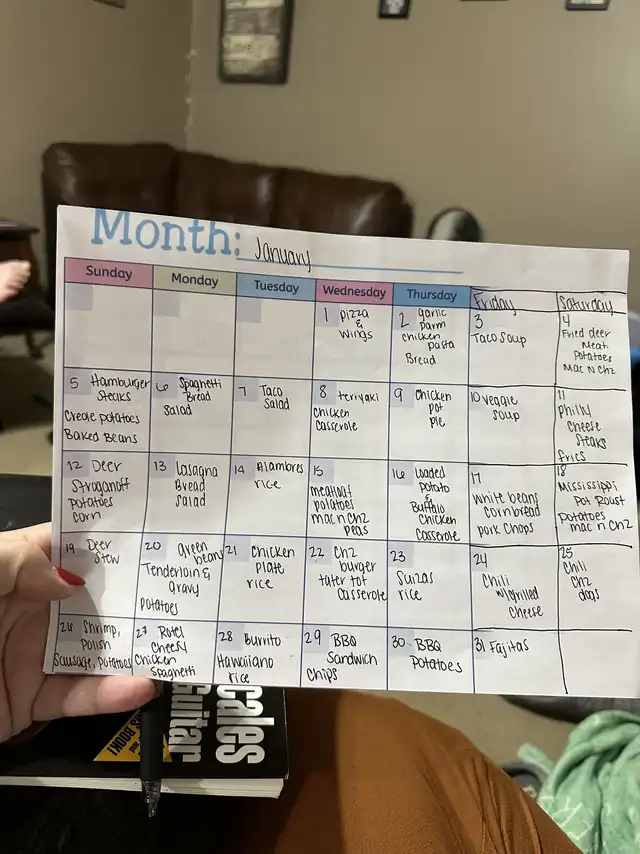 Month: January
Sunday Monday Tuesday Wednesday Thursday Friday Saturday
1 pizza
&
wings
2 garlic
parm
chicken
pasta
Bread
3
Taco soup
4
Fried deer
Meat
Potatoes
Mac N Chz
5 Hamburger
Steaks
Creole potatoes
Baked Beans
6 Spaghetti
Bread
Salad
7 Taco
Salad
8 teriyaki
chicken
casserole
9 chicken
pot
pie
10 veggie
soup
11
Philly
Cheese
Steaks
fries
12 Deer
Stroganoff
potatoes
corn
13 Lasagna
Bread
Salad
14 Alambres
rice
15
meatloaf
potatoes
mac n chz
peas
16 Loaded
potato
&
Buffalo
chicken
casserole
17
White beans
cornbread
pork chops
18
Mississippi
Pot Roast
potatoes
mac n chz
19 Deer
Stew
20 green
beans
Tenderloin &
gravy
potatoes
21 Chicken
plate
rice
22 Chz
burger
tater tot
casserole
23
Suizas
rice
24
Chili
w/grilled
cheese
25
Chili
chz
dogs
26 Shrimp,
Polish
Sausage, potatoes
27 Rotel
cheesy
chicken
spaghetti
28 Burrito
Hawaiiano
rice
29 BBQ
Sandwich
chips
30 BBQ
Potatoes
31 Fajitas
cales
Guitar
BOOK!